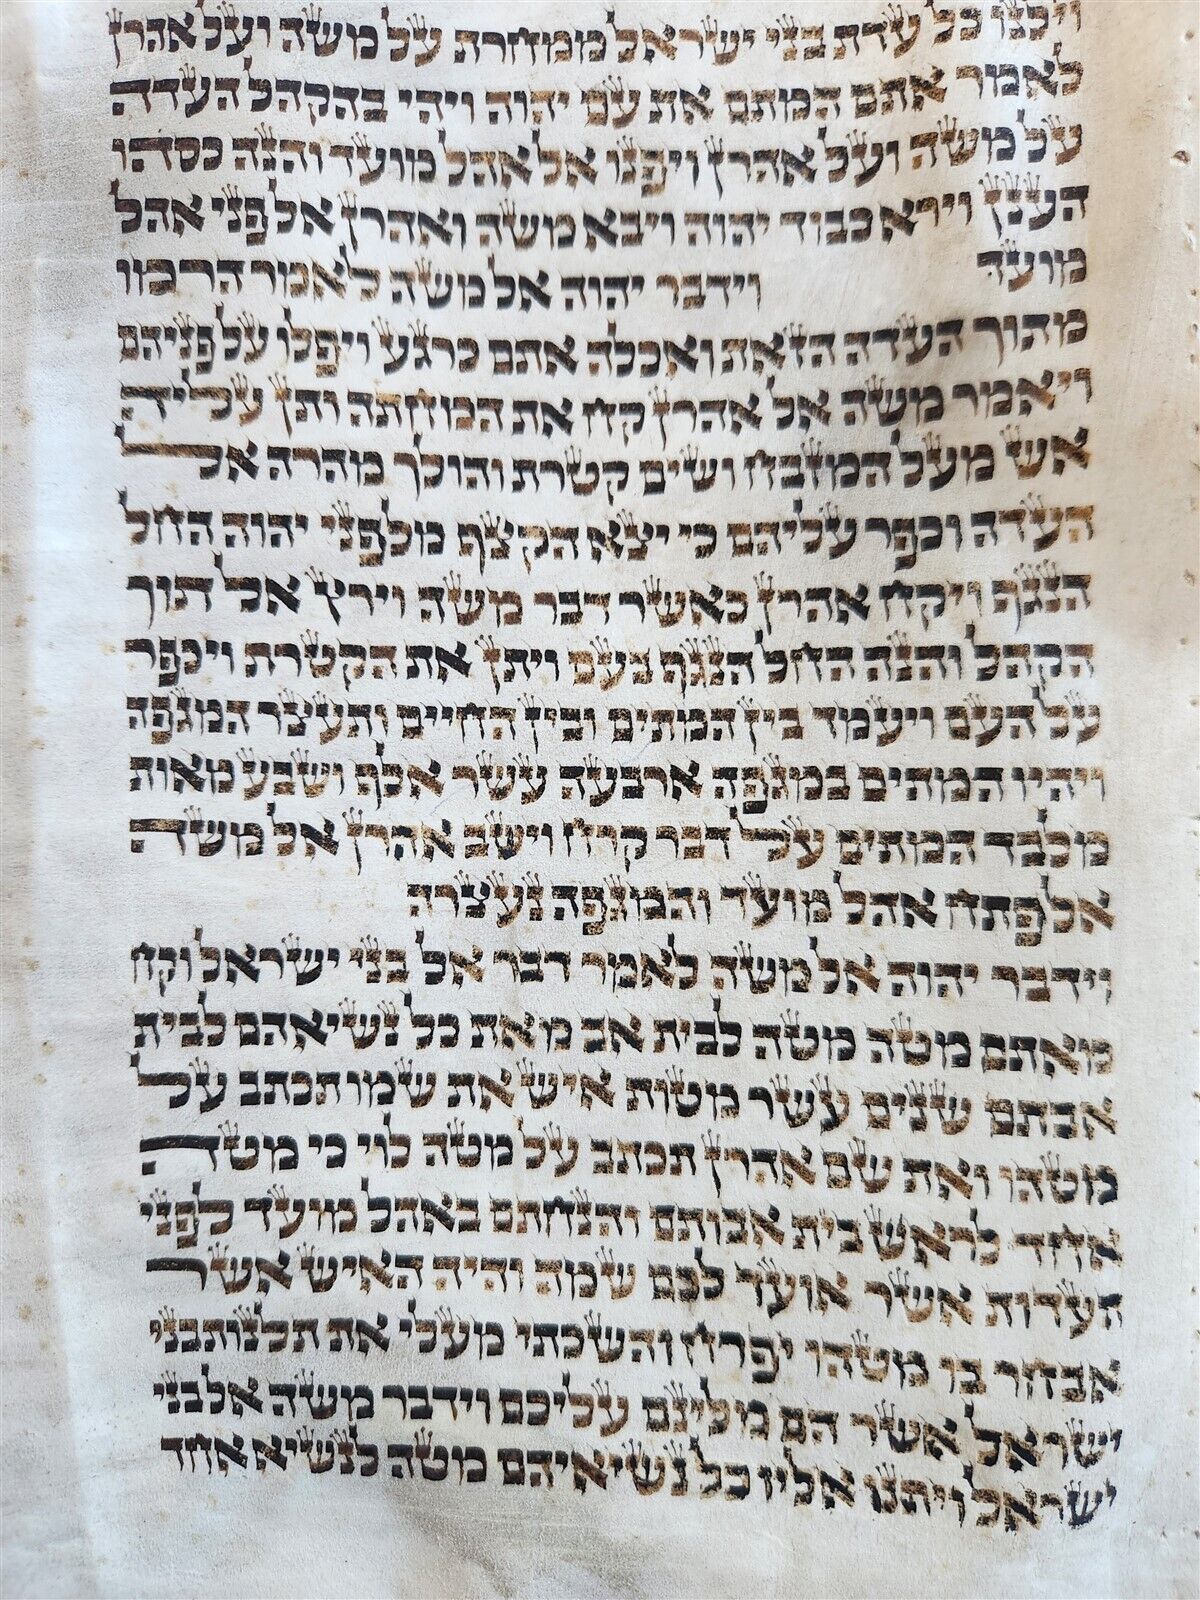 וילנו כל עדת בני ישראל ממחרת על משה ועל אהרן
לאמר אתם המתם את עם יהוה ויהי בהקהל העדה
על משה ועל אהרן ויפנו אל אהל מועד והנה כסהו
הענן וירא כבוד יהוה ויבא משה ואהרן אל פני אהל
מועד וידבר יהוה אל משה לאמר הרמו
מתוך העדה הזאת ואכלה אתם כרגע ויפלו על פניהם
ויאמר משה אל אהרן קח את המחתה ותן עליה
אש מעל המזבח ושים קטרת והולך מהרה אל
העדה וכפר עליהם כי יצא הקצף מלפני יהוה החל
הנגף ויקח אהרן כאשר דבר משה וירץ אל תוך
הקהל והנה החל הנגף בעם ויתן את הקטרת ויכפר
על העם ויעמד בין המתים ובין החיים ותעצר המגפה
ויהיו המתים במגפה ארבעה עשר אלף ושבע מאות
מלבד המתים על דבר קרח וישב אהרן אל משה
אל פתח אהל מועד והמגפה נעצרה
וידבר יהוה אל משה לאמר דבר אל בני ישראל וקח
מאתם מטה מטה לבית אב מאת כל נשיאהם לבית
אבתם שנים עשר מטות איש את שמו תכתב על
מטהו ואת שם אהרן תכתב על מטה לוי כי מטה
אחד לראש בית אבותם והנחתם באהל מועד לפני
העדות אשר אועד לכם שמה והיה האיש אשר
אבחר בו מטהו יפרח והשכתי מעלי את תלנות בני
ישראל אשר הם מלינם עליכם וידבר משה אל בני
ישראל ויתנו אליו כל נשיאיהם מטה לנשיא אחד